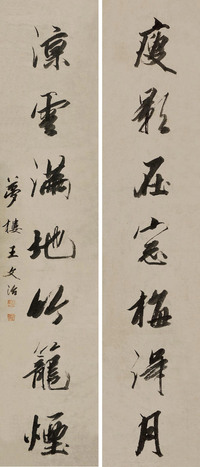 瘦影在窓梅得月
涼雲滿地竹籠煙
夢樓王文治